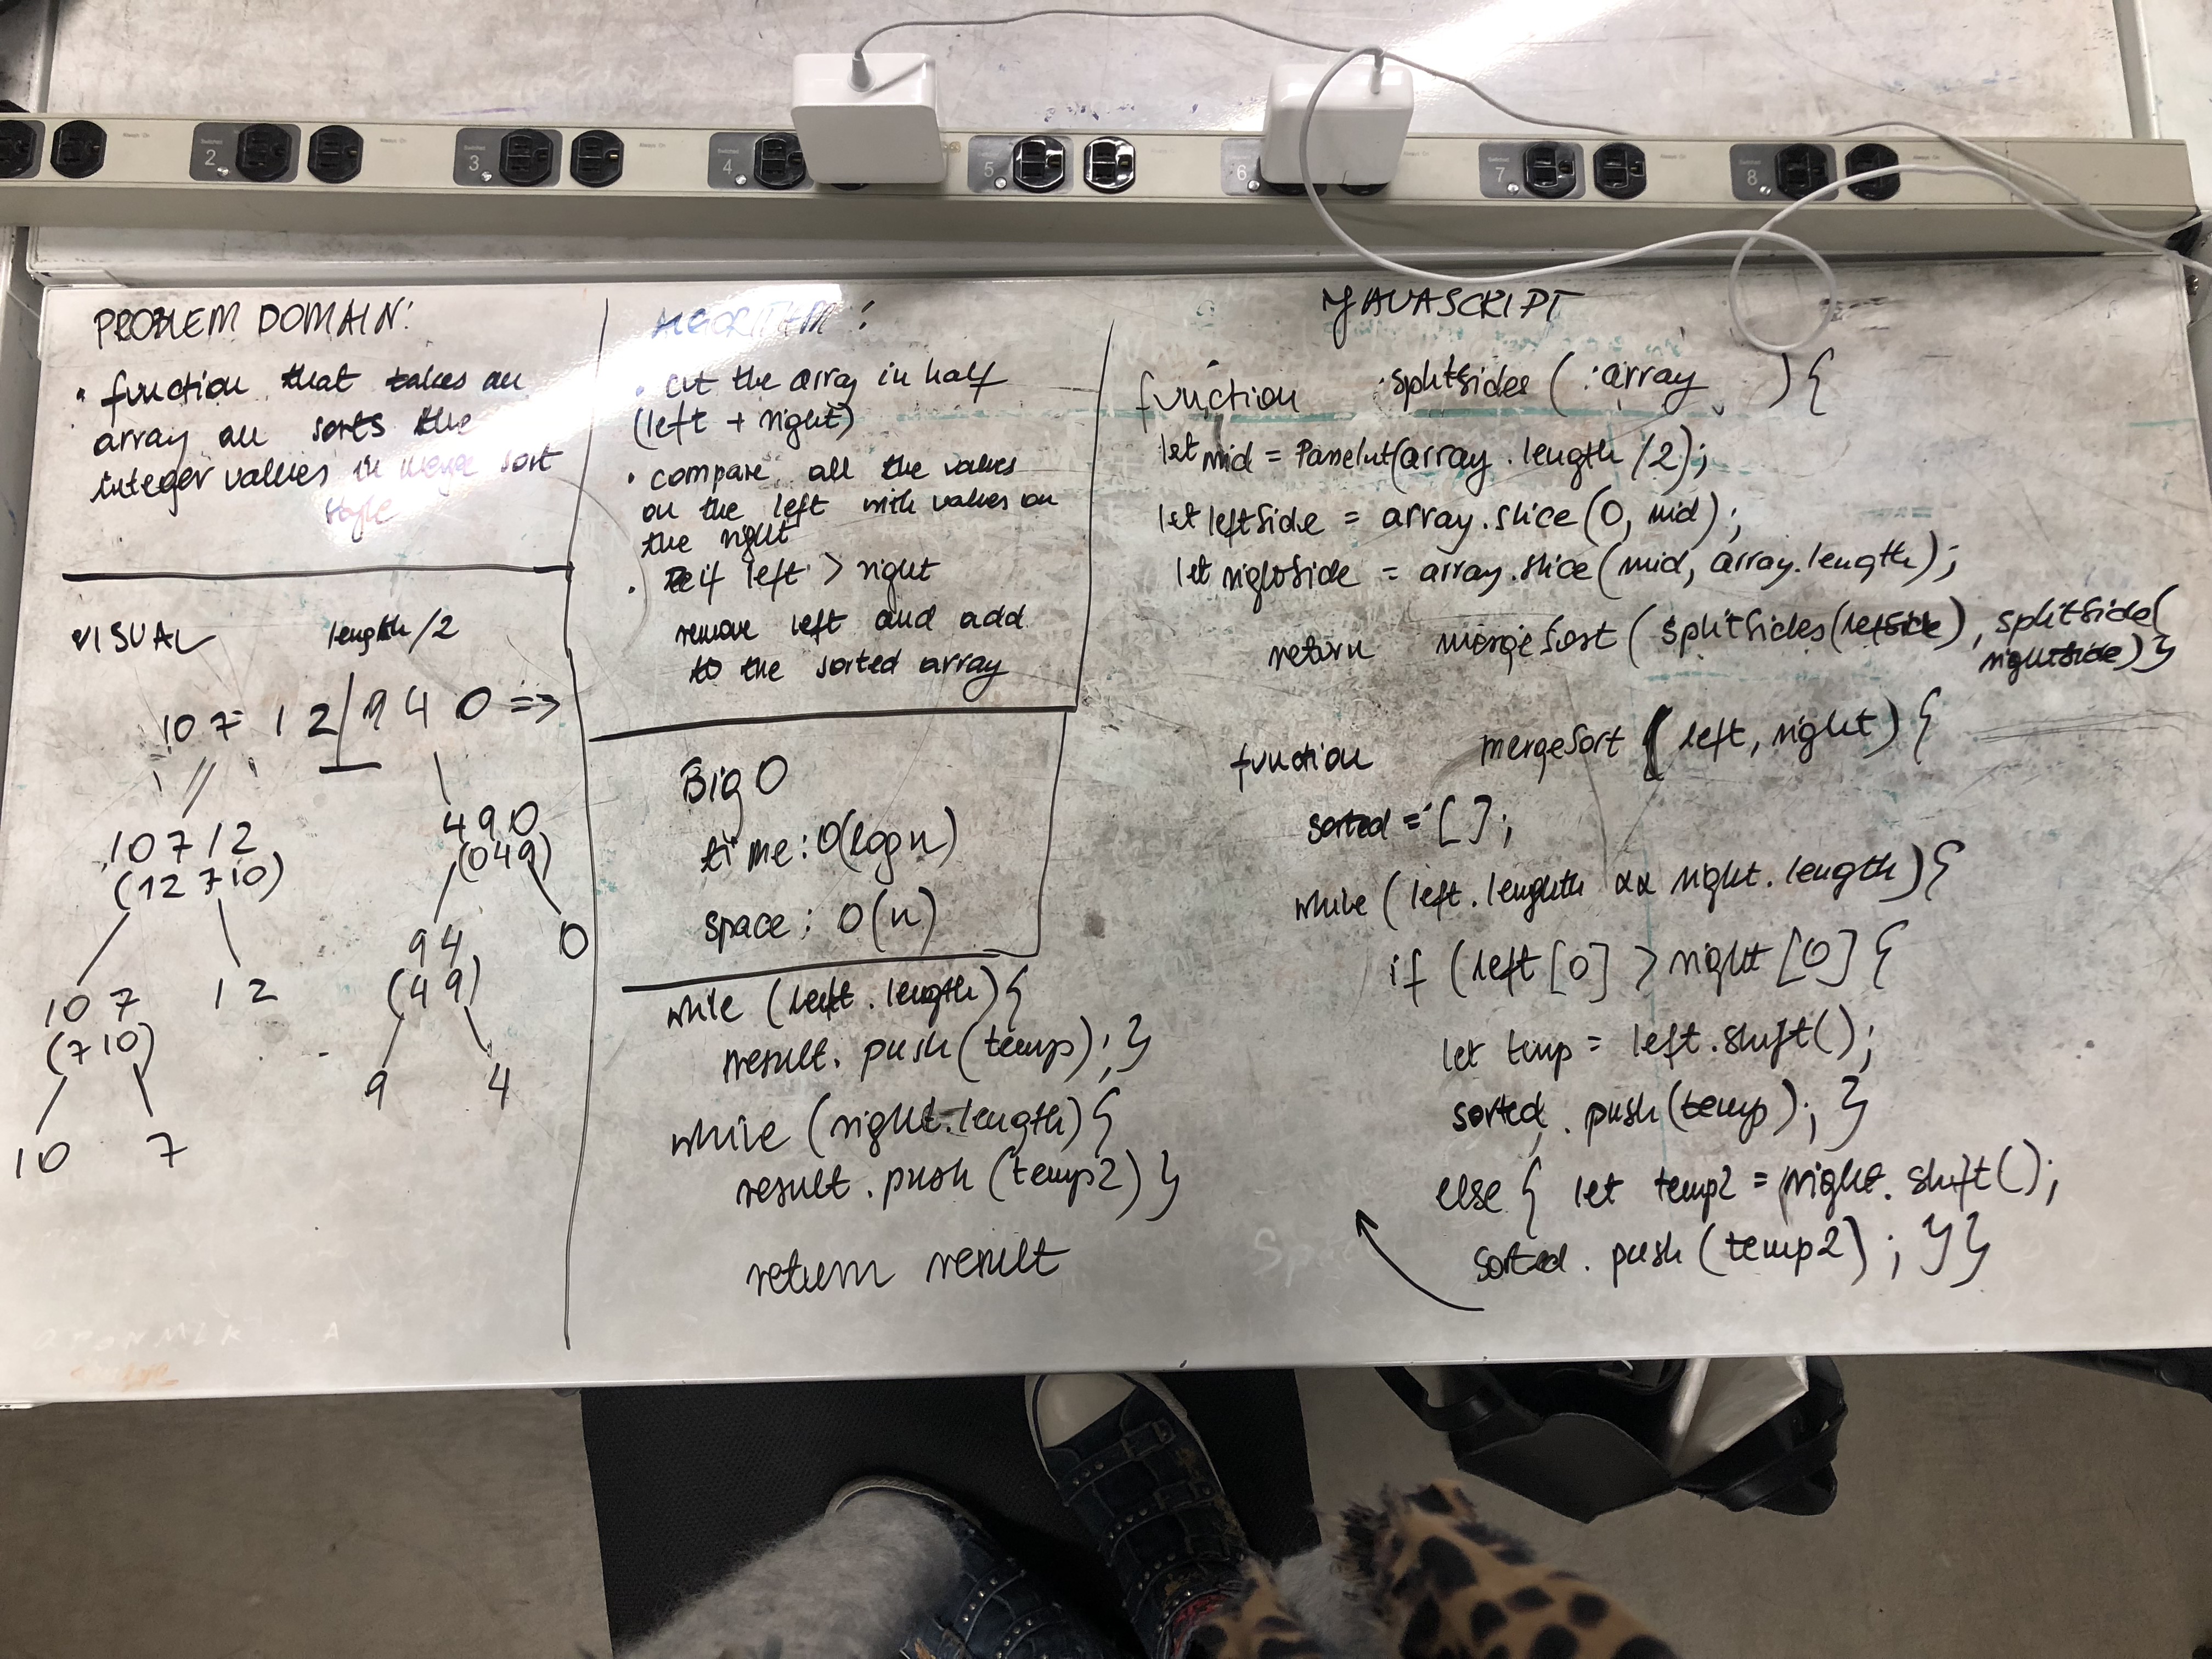 PROBLEM DOMAIN:
• function that takes an
array an sorts the
integer values in merge sort
VISUAL
length/2
10 7 12 | 9 4 0 =>
10 7 12
(12 7 10)
4 9 0
(0 4 9)
10 7
(7 10)
12
9 4
(4 9)
0
10 7
9 4
ALGORITHM:
• cut the array in half
(left + right)
• compare all the values
on the left with values on
the right
• if left > right
remove left and add
to the sorted array
BIG O
time: O(log n)
space: O(n)
while (left.length){
result.push(temp);}
while (right.length){
result.push(temp2)}
return result
JAVASCRIPT
function splitsides (array){
let mid = ParseInt(array.length/2);
let leftSide = array.slice(0, mid);
let rightSide = array.slice(mid, array.length);
return mergeSort (splitSides(leftSide), splitSide(
rightSide)}
function mergeSort (left, right){
sorted = [];
while (left.length && right.length){
if (left[0] > right[0]{
let temp = left.shift();
sorted.push(temp);}
else{ let temp2 = right.shift();
sorted.push(temp2); }}
1
2
3
4
5
6
7
8